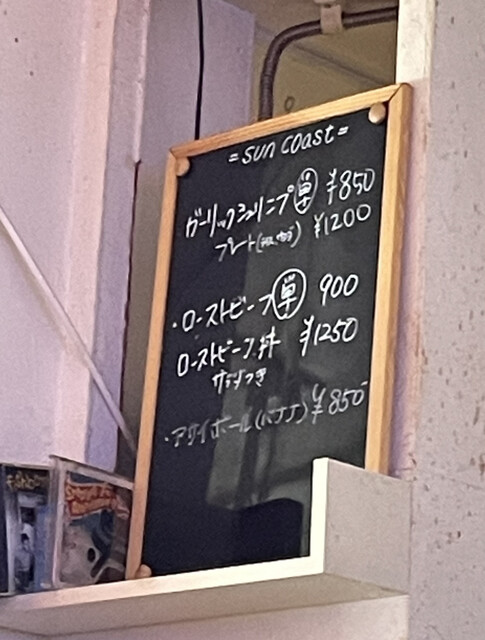 =SUN COAST=
ガーリックシュリンプ 単 ¥850
プレート ¥1200
・ローストビーフ 単 900
ローストビーフ丼 ¥1250
サラダつき
・アサイボール(バナナ) ¥850